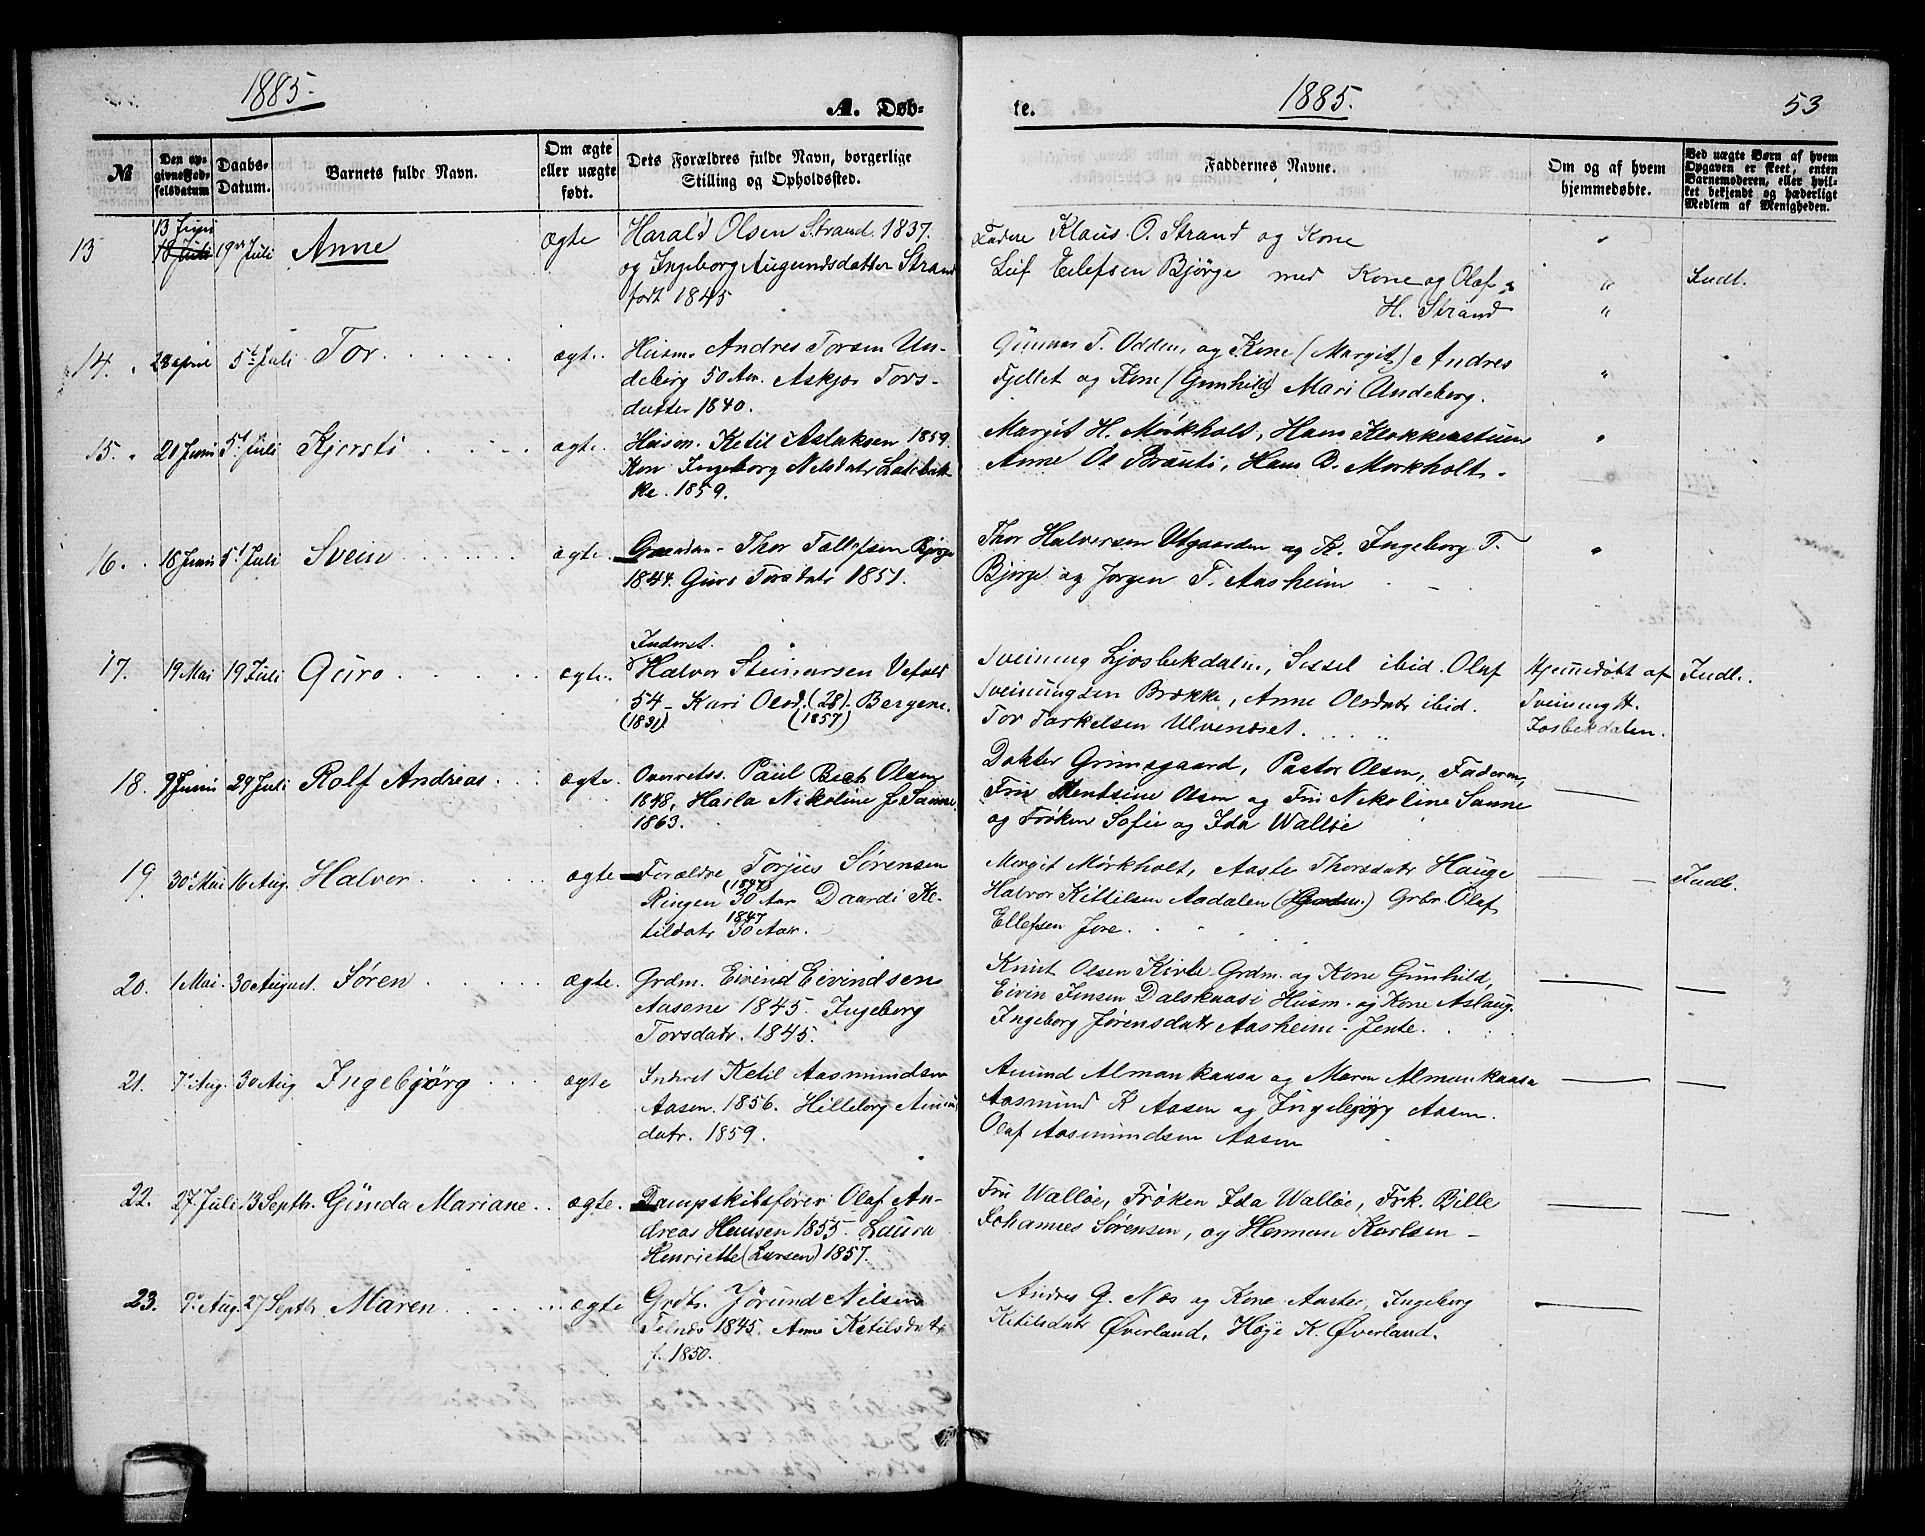 1885.
A. Døb-
№
Den op-
givne Fød-
selsdatum
Daabs-
Datum.
Barnets fulde Navn.
Om ægte
eller uægte
født.
Dets Forældres fulde Navn, borgerlige
Stilling og Opholdssted.
13
13 Juni
18 Juli
19 Juli
Anne
ægte
Harald Olsen Strand. 1837.
og Ingeborg Augundsdatter Strand
født 1845
14.
28 april
5te Juli
Tor
ægte.
Husm. Andres Torsen Un-
deberg 50 Aar. Askjær Tors-
datter 1840.
15.
20 Juni
5t Juli
Kjersti
ægte.
Husm. Ketil Aslaksen 1859.
Kon Ingeborg Nelsdatr
ke. 1859.
16.
18 Juni
5t Juli
Svein
ægte.
Thor Tollefsen Bjørge
1844. Guro Torsdatr 1851.
17.
19 Mai
19 Juli
Guro
ægte.
Inderst.
Halvor Steinarsen Vefald
54 - Kari Olsd. (28). Bergene.
(1831) (1857)
18.
9 Juni
29 Juli
Rolf Andreas
ægte.
Overretss. Paul Bech Olsen
1848, Harla Nikoline f. Sanne.
1863.
19.
30' Mai
16 Aug.
Halvor
ægte
Forældre Torjus Sørensen
(1847)
Ringen 30 Aar Daardi Ke-
1847
tildatr 30 Aar.
20.
1 Mai.
30 August.
Søren
ægte.
Grdm. Eivind Eivindsen
Aasene 1845. Ingeborg
Torsdatr. 1845.
21.
7' Aug.
30 Aug
Ingebjørg
ægte
Inderst Ketil Aasmundsen
Aasen. 1856. Hilleborg
datr. 1859.
22.
27 Juli
13 Septb.
Gunda Mariane
ægte.
Dampskibsfører Olaf An-
dreas Hansen 1855. Laura
Henriette (Larsen) 1857.
23.
9' Aug.
27 Septb.
Maren
ægte
Grdb. Jørund Nilsen
Telnes 1845. Anne Ketilsdatr
f. 1850.
te.
1885.
53
Faddernes Navne.
Om og af hvem
hjemmedøbte.
Ved uægte Børn af hvem
Opgaven er skeet, enten
Barnemoderen, eller hvil-
ket bekjendt og hæderligt
Medlem af Menigheden.
Klaus O. Strand og Kone
Leif Eilefsen Bjørge med Kone og Olaf
H. Strand
Indl.
Gunnar T. Udden, og Kone (Margit) Andres
Fjellet og Kone (Gunhild) Mari Undeberg.
Margit H. Mørkholt, Hans Klokkerstuen
Anne Ol Brauti, Hans B. Mørkholt.
Thor Halvorsen Utgaarden og K. Ingeborg T.
Bjørge og Jørgen T. Aasheim
Sveinung Ljosbekdalen, Sissel ibid. Olaf
Sveinungsen Brække, Anne Olsdatr ibid.
Tor Tarkelsen Ulvenæset.
Hjemmedøbt af
Sveinung H.
Josbekdalen.
Indl.
Dokter Grimsgaard, Pastor Olsen, Faderen,
Fru Mentsine Olsen og Fru Nikoline Sanne
og Frøken Sofie og Ida Walløe
Mergit Mørkholt, Aaste Thorsdatr Hauge
Halvor Kittilsen Aadalen Grbr. Olaf
Ellefsen Jore.
Indb.
Knut Olsen Kirle Grdm. og Kone Gunhild,
Eivin Jensen Dalsknasi Husm. og Kone Aslaug.
Ingeborg Jørensdatr Aasheim. Jente.
Amund Almankaasa og Maren Almankaasa
Aasmund K Aasen og Ingebjørg Aasen.
Olaf Aasmundsen Aasen
Fru Walløe, Frøken Ida Walløe, Frk. Bille
Johannes Sørensen, og Herman Karlsen -
Andres G. Næs og Kone Aaste, Ingeborg
Ketilsdatr Øverland, Høge K. Øverland.